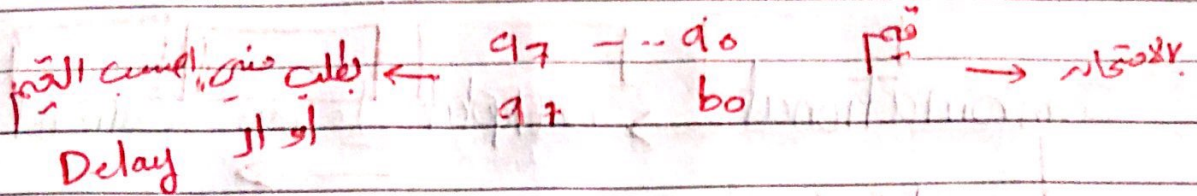 بالامتحان → قيم a0 -- a7 ← يطلب مني احسب القيم
b0 a7 او ال
Delay